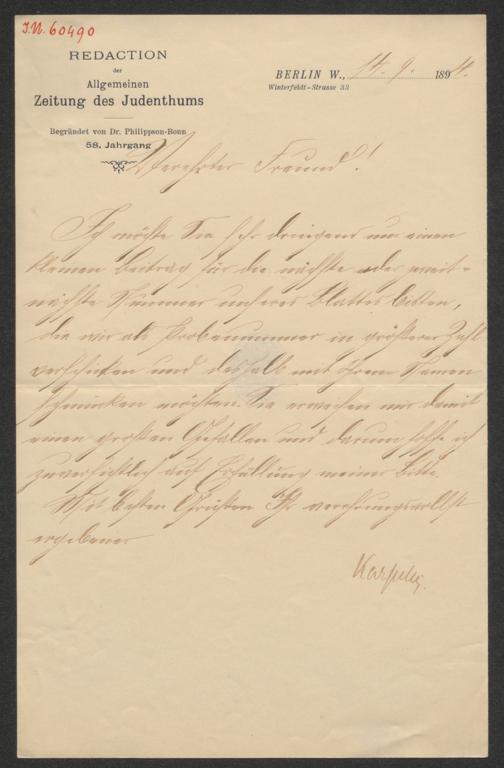 J.N. 60490
REDACTION
der
Allgemeinen
Zeitung des Judenthums
Begründet von Dr. Philippson-Bonn
58. Jahrgang
BERLIN W., 14. 9. 1894.
Winterfeldt-Strasse 33
Verehrter Freund!
Ich möchte Sie sehr dringend um einen
kleinen Beitrag für die nächste oder zweit-
nächste Nummer unseres Blattes bitten,
die wir als Probenummer in größerer Zahl
verschicken und deshalb mit Ihrem Namen
schmücken möchten. Sie erweisen mir damit
einen großen Gefallen und darum hoffe ich
zuversichtlich auf Erfüllung meiner Bitte.
Mit besten Grüßen Ihr verehrungsvollst
ergebener
Karpeles.